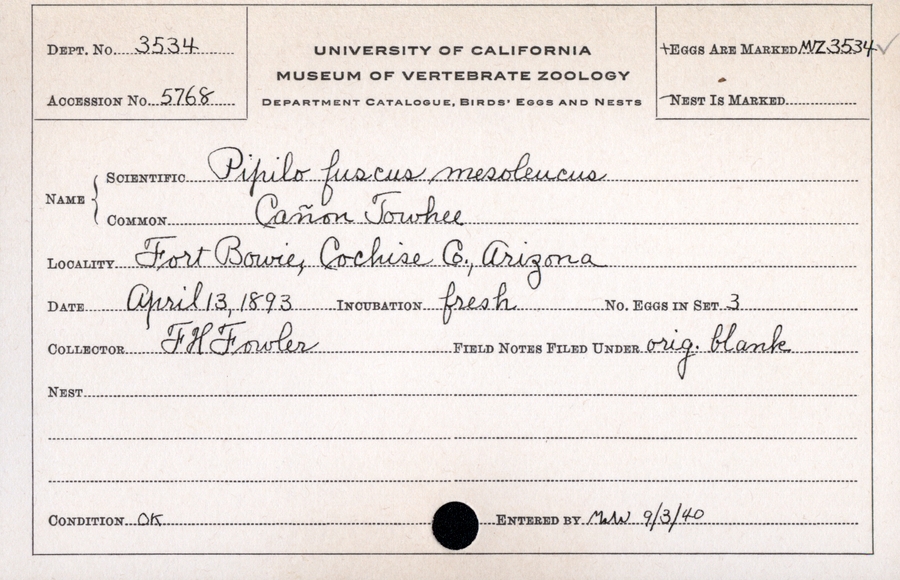 DEPT. No. 3534
ACCESSION No. 5768
UNIVERSITY OF CALIFORNIA
MUSEUM OF VERTEBRATE ZOOLOGY
DEPARTMENT CATALOGUE, BIRDS' EGGS AND NESTS
+EGGS ARE MARKED MVZ3534 ✓
NEST IS MARKED
NAME
SCIENTIFIC Pipilo fuscus mesoleucus
COMMON Cañon Towhee
LOCALITY Fort Bowie, Cochise Co., Arizona
DATE April 13, 1893 INCUBATION fresh No. EGGS IN SET 3
COLLECTOR F H Fowler FIELD NOTES FILED UNDER orig. blank
NEST
CONDITION OK ENTERED BY 9/3/40